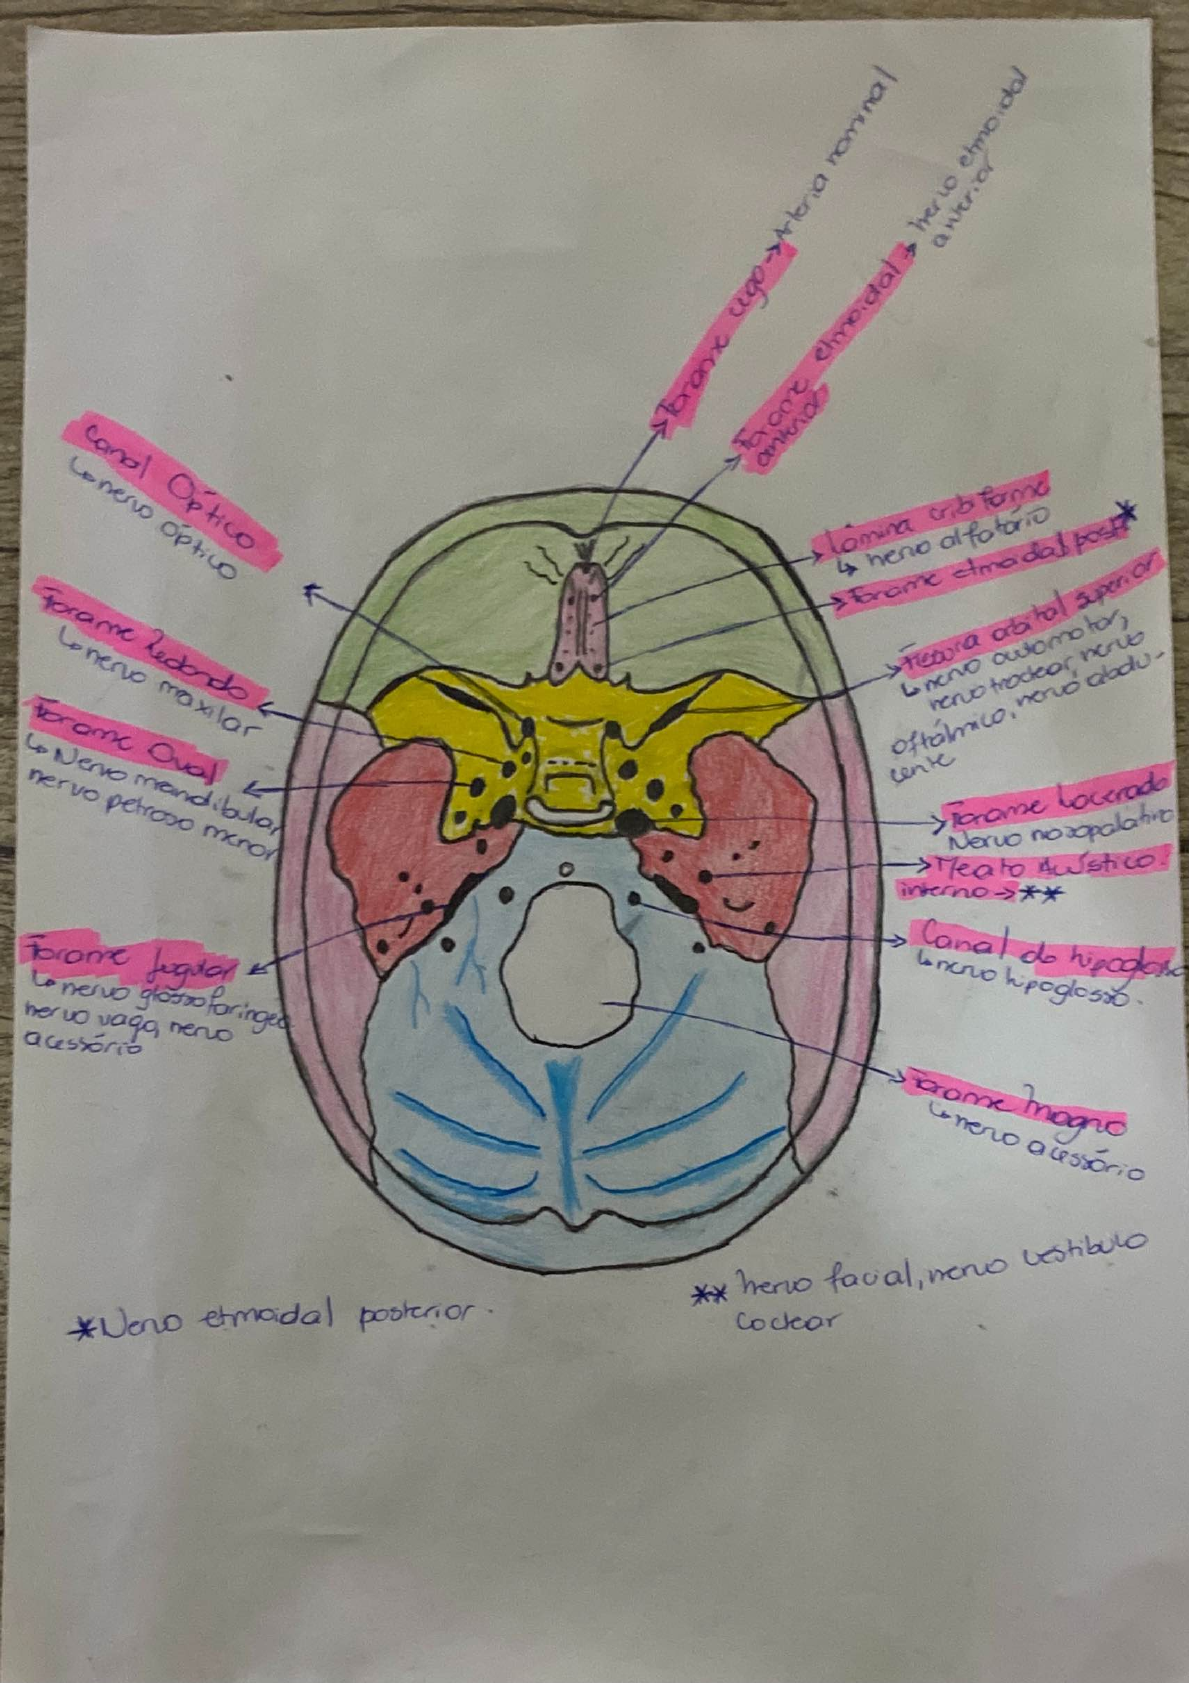 Forame cego → Arteria nominal
Forame etmoidal → nervo etmoidal
anterior
anterior
Canal Óptico
↳ nervo óptico
Lâmina cribforme
↳ nervo olfatório
Forame etmoidal post *
Forame Redondo
↳ nervo maxilar
Fissura orbital superior
↳ nervo
nervo troclear, nervo
oftálmico, nervo abdu-
cente
Forame Oval
↳ Nervo mandibular
nervo petroso menor
Forame Lacerado
Nervo nasopalatino
Meato Acústico
interno → **
Forame Jugular
↳ nervo glossofaringeo
nervo vago, nervo
acessório
Canal do hipoglosso
↳ nervo hipoglosso.
Forame Magno
↳ nervo acessório
* Nervo etmoidal posterior.
** nervo facial, nervo vestibulo
coclear